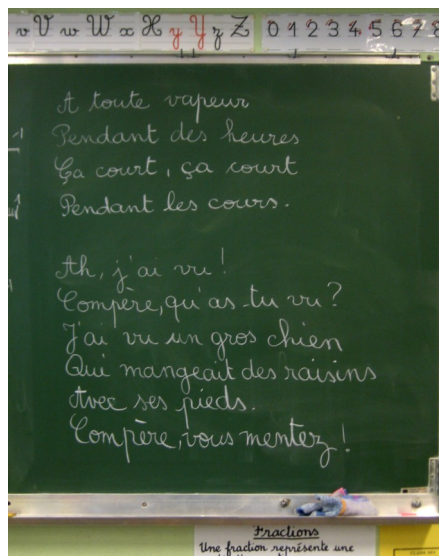 v V w W x X y Y z Z 0 1 2 3 4 5 6 7 8
A toute vapeur
Pendant des heures
Ça court, ça court
Pendant les cours.
Ah, j'ai vu !
Compère, qu'as-tu vu ?
J'ai vu un gros chien
Qui mangeait des raisins
Avec ses pieds.
Compère, vous mentez !
Fractions
Une fraction représente une